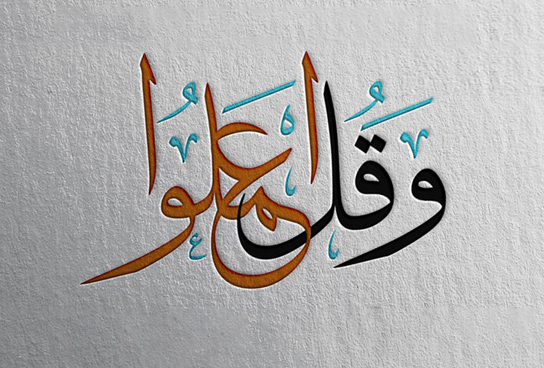 وَقُل اعمَلُوا